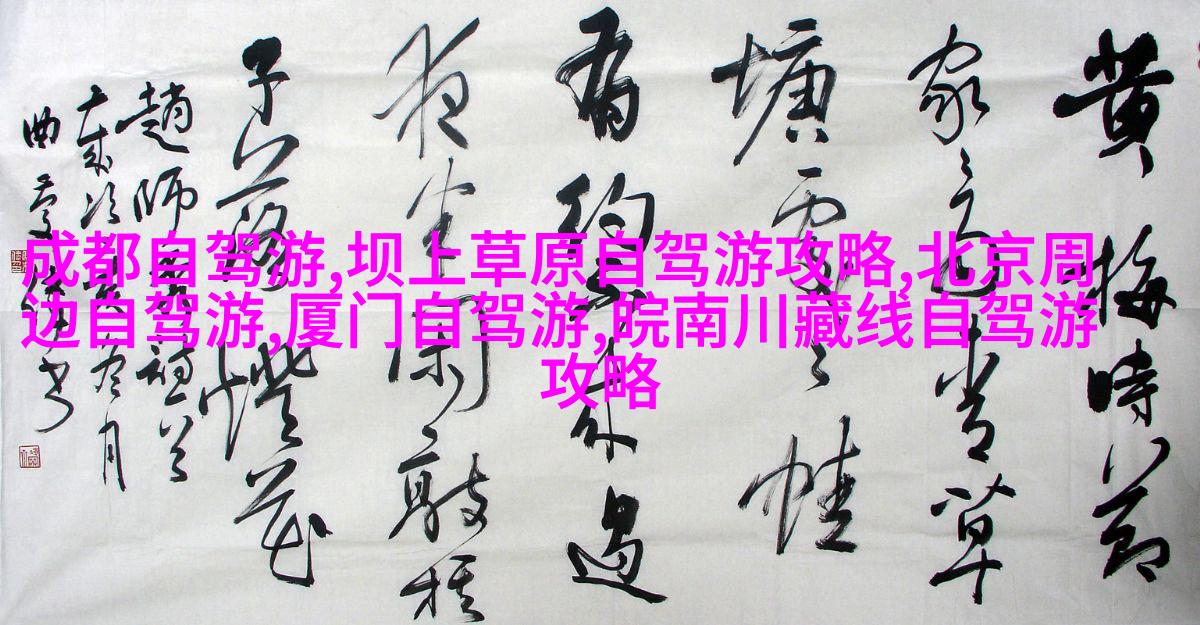 成都自驾游,坝上草原自驾游攻略,北京周
边自驾游,厦门自驾游,皖南川藏线自驾游
攻略
黄梅時节
家々青草
塘處々蛙
有約不来過
夜半闲敲棋
子落燈花
趙師